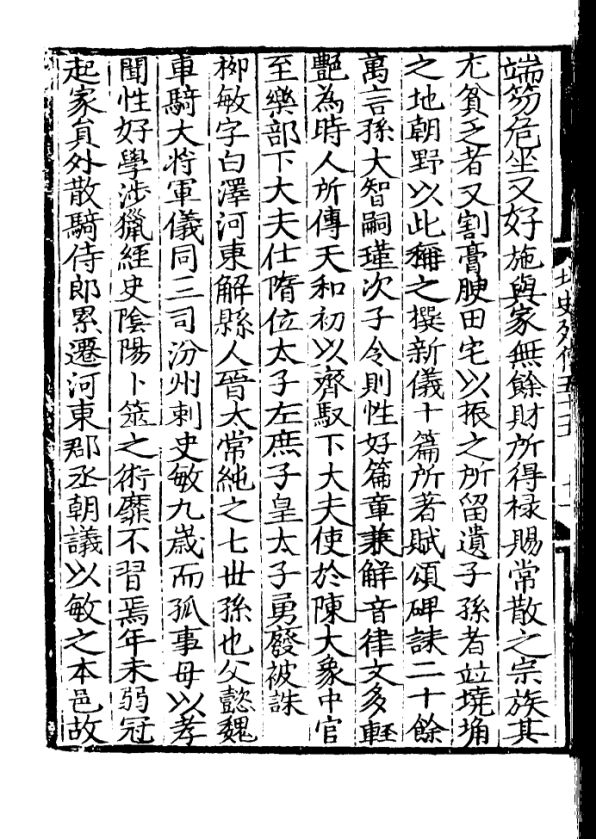 端笏危坐又好施與家無餘財所得祿賜常散之宗族其
尤貧乏者又割膏腴田宅以振之所留遺子孫者竝墝埆
之地朝野以此稱之撰新儀十篇所著賦頌碑誄二十餘
萬言孫大智嗣瑾次子令則性好篇章兼解音律文多輕
艷為時人所傳天和初以齊馭下大夫使於陳大象中官
至樂部下大夫仕隋位太子左庶子皇太子勇廢被誅
柳敏字白澤河東解縣人晉太常純之七世孫也父懿魏
車騎大將軍儀同三司汾州刺史敏九歲而孤事母以孝
聞性好學涉獵經史陰陽卜筮之術靡不習焉年未弱冠
起家員外散騎侍郎累遷河東郡丞朝議以敏之本邑故